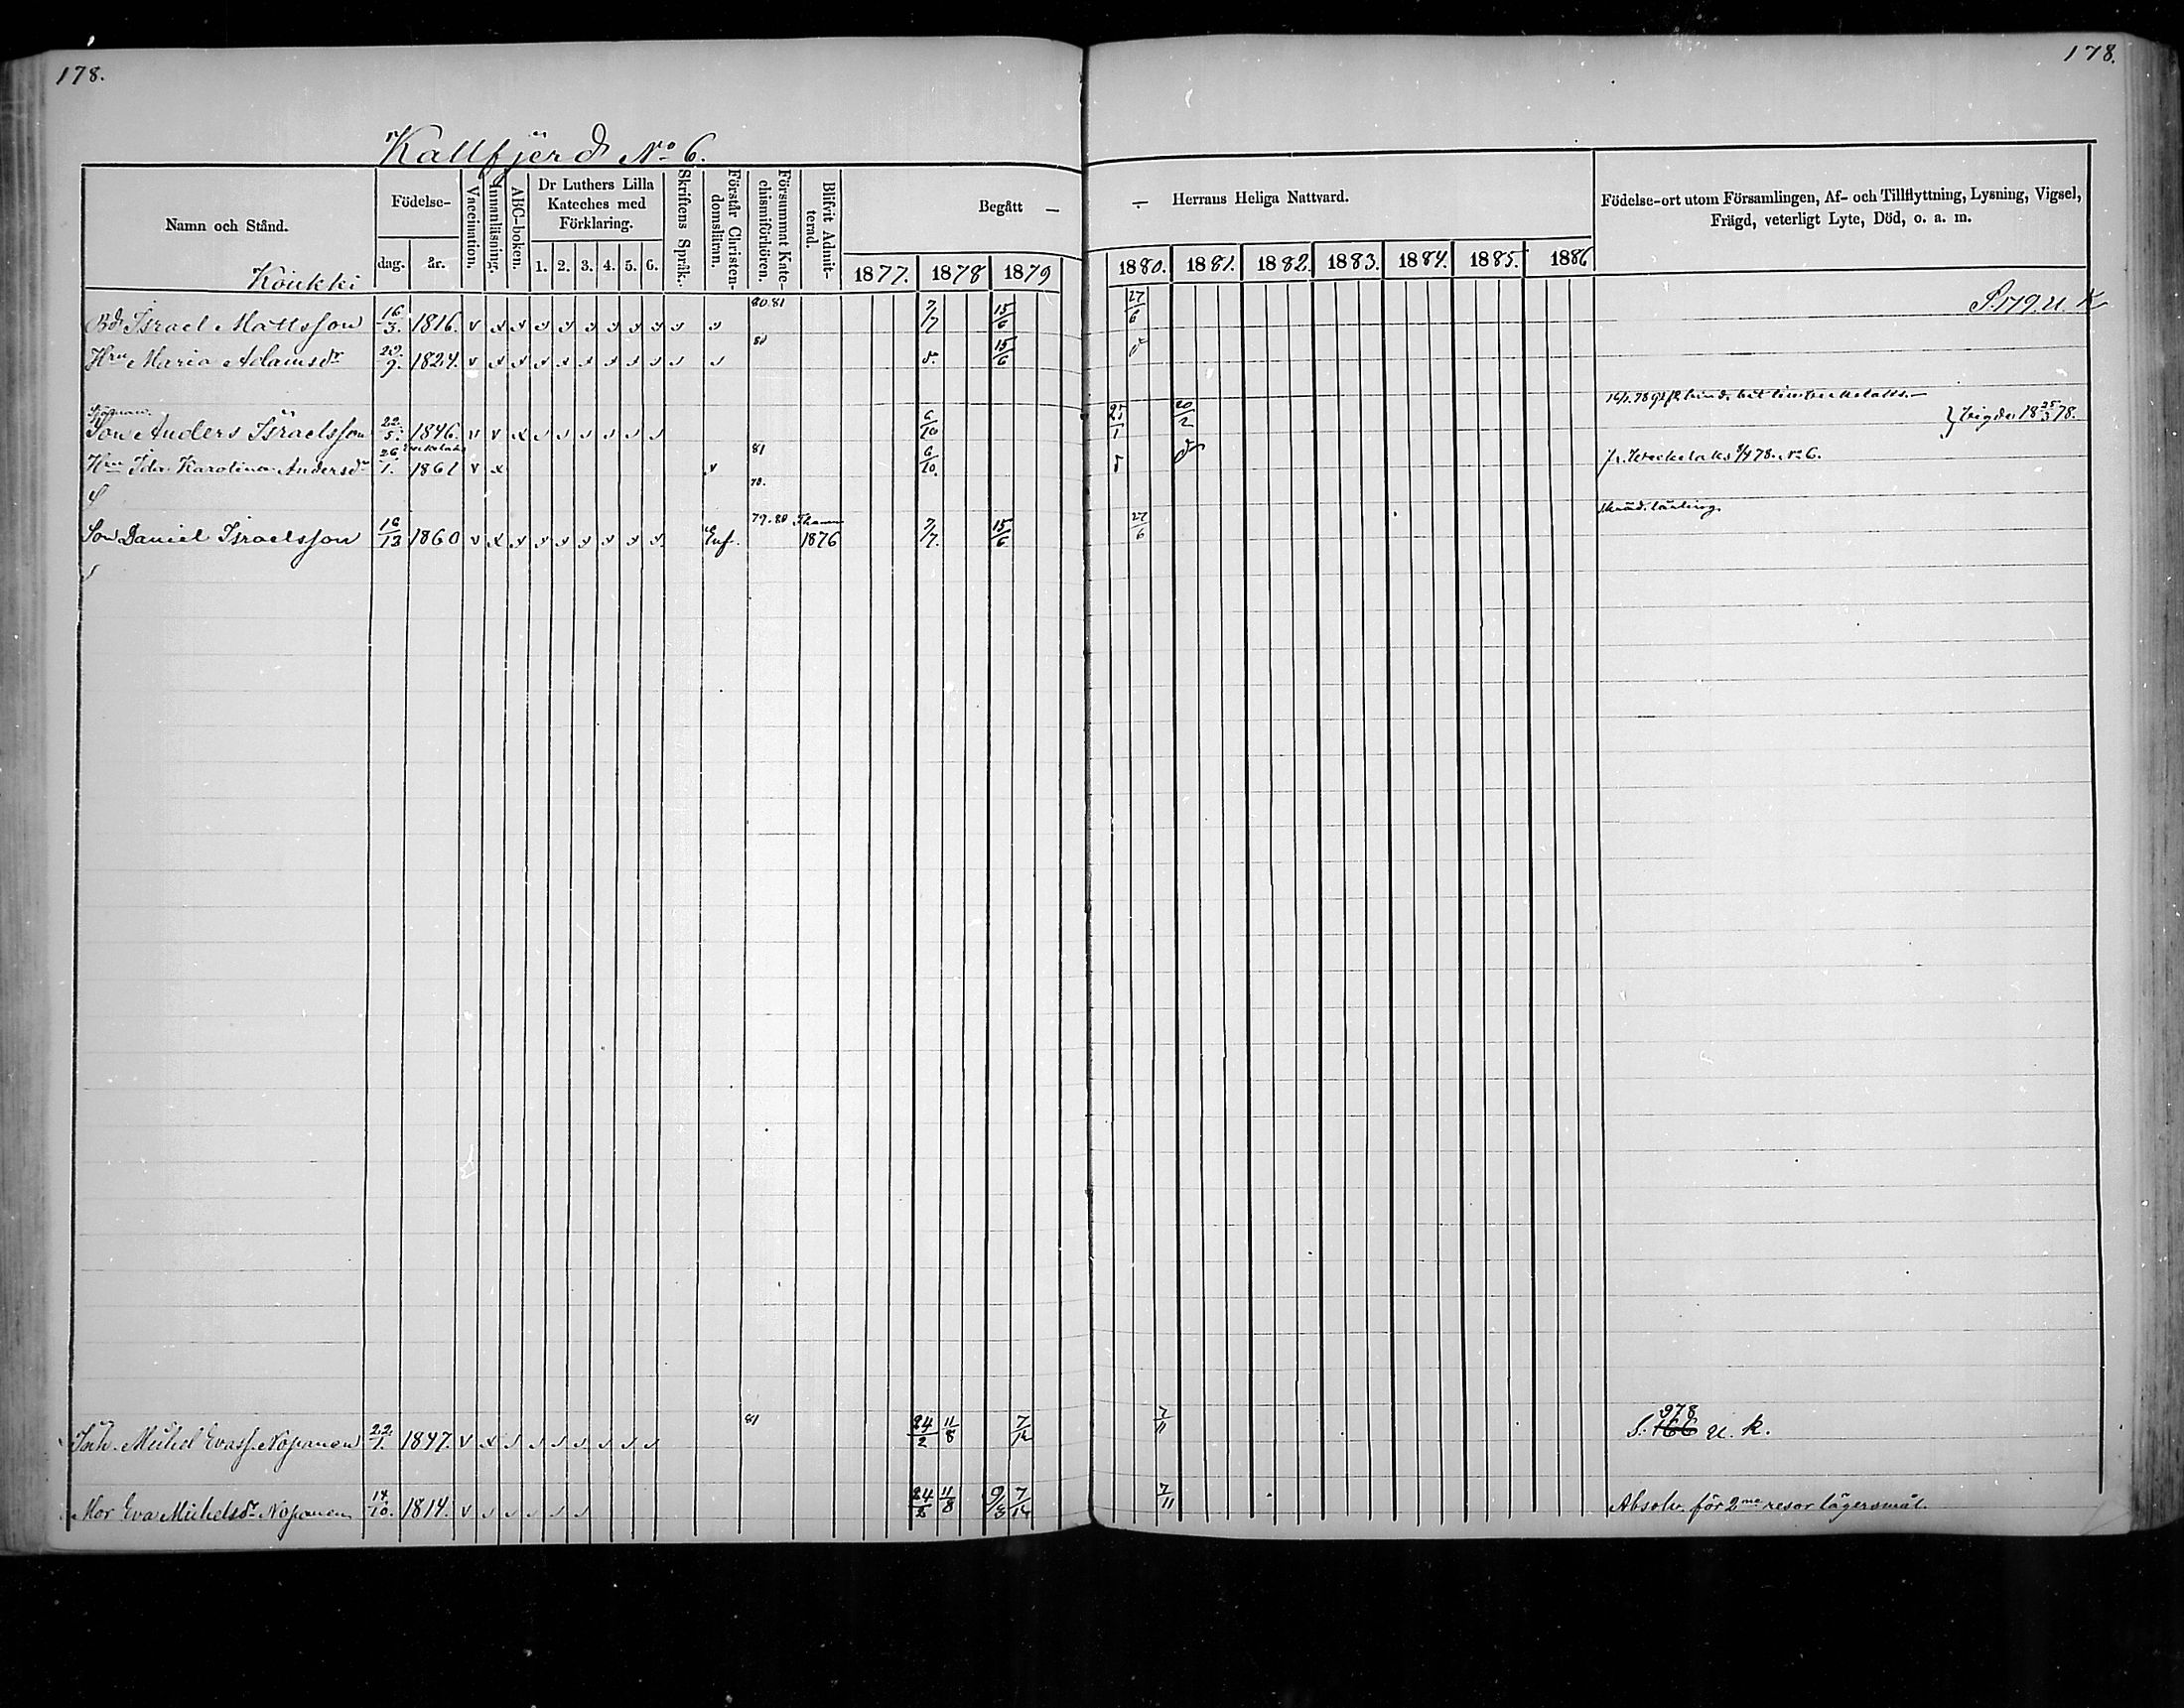 178.
178.
Kallfjerd No 6.
Namn och Stånd.
Födelse-
dag.
år.
Vaccination.
Innanläsning.
ABC-boken.
Dr Luthers Lilla Kateches med Förklaring.
1. 2. 3. 4. 5. 6.
Skriftens Språk.
Förstår Christendomsläran.
Försummat Katechismiförhören.
Blifvit Admitterad.
Begått — — Herrans Heliga Nattvard.
1877. 1878 1879 1880. 1881. 1882. 1883. 1884. 1885. 1886
Födelse-ort utom Församlingen, Af- och Tillflyttning, Lysning, Vigsel, Frägd, veterligt Lyte, Död, o. a. m.
Koukki
Bd Israel Mattsson 16/3. 1816. v 80.81 7/7 15/6 27/6 S. 179. U. K
Hru Maria Adamsdr 29/9. 1824. v 15/6
Sjöman.
Son Anders Israelsson 22/5. 1846. v v 6/10 25/1 20/2 Vigde 18 25/3 78.
Hru Ida Karolina Andersdr 26/1. 1861 v 81 6/10. No 6.
Son Daniel Israelsson 16/12 1860 v Enf. 79.80 1876 7/7. 15/6 27/6
Inh. Michel Evass. Nopanen 22/1. 1847. v 81 24/2 11/8 7/12 7/11 S. 166 978 u. k.
Mor Eva Michelsdr Nopanen 14/10. 1814. v 24/2 11/8 9/3 7/12 7/11 Absolv. för 2ne resor lägersmål.